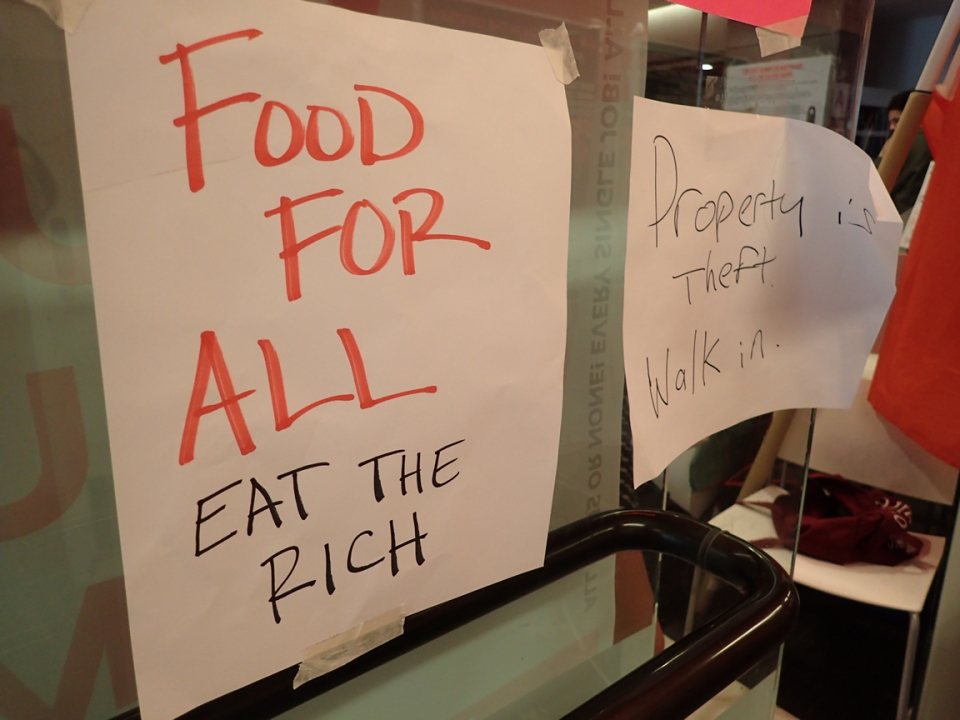 FOOD
FOR
ALL
EAT THE
RICH
Property is
Theft.
Walk in.
OR NONE! EVERY SINGLE JOB!